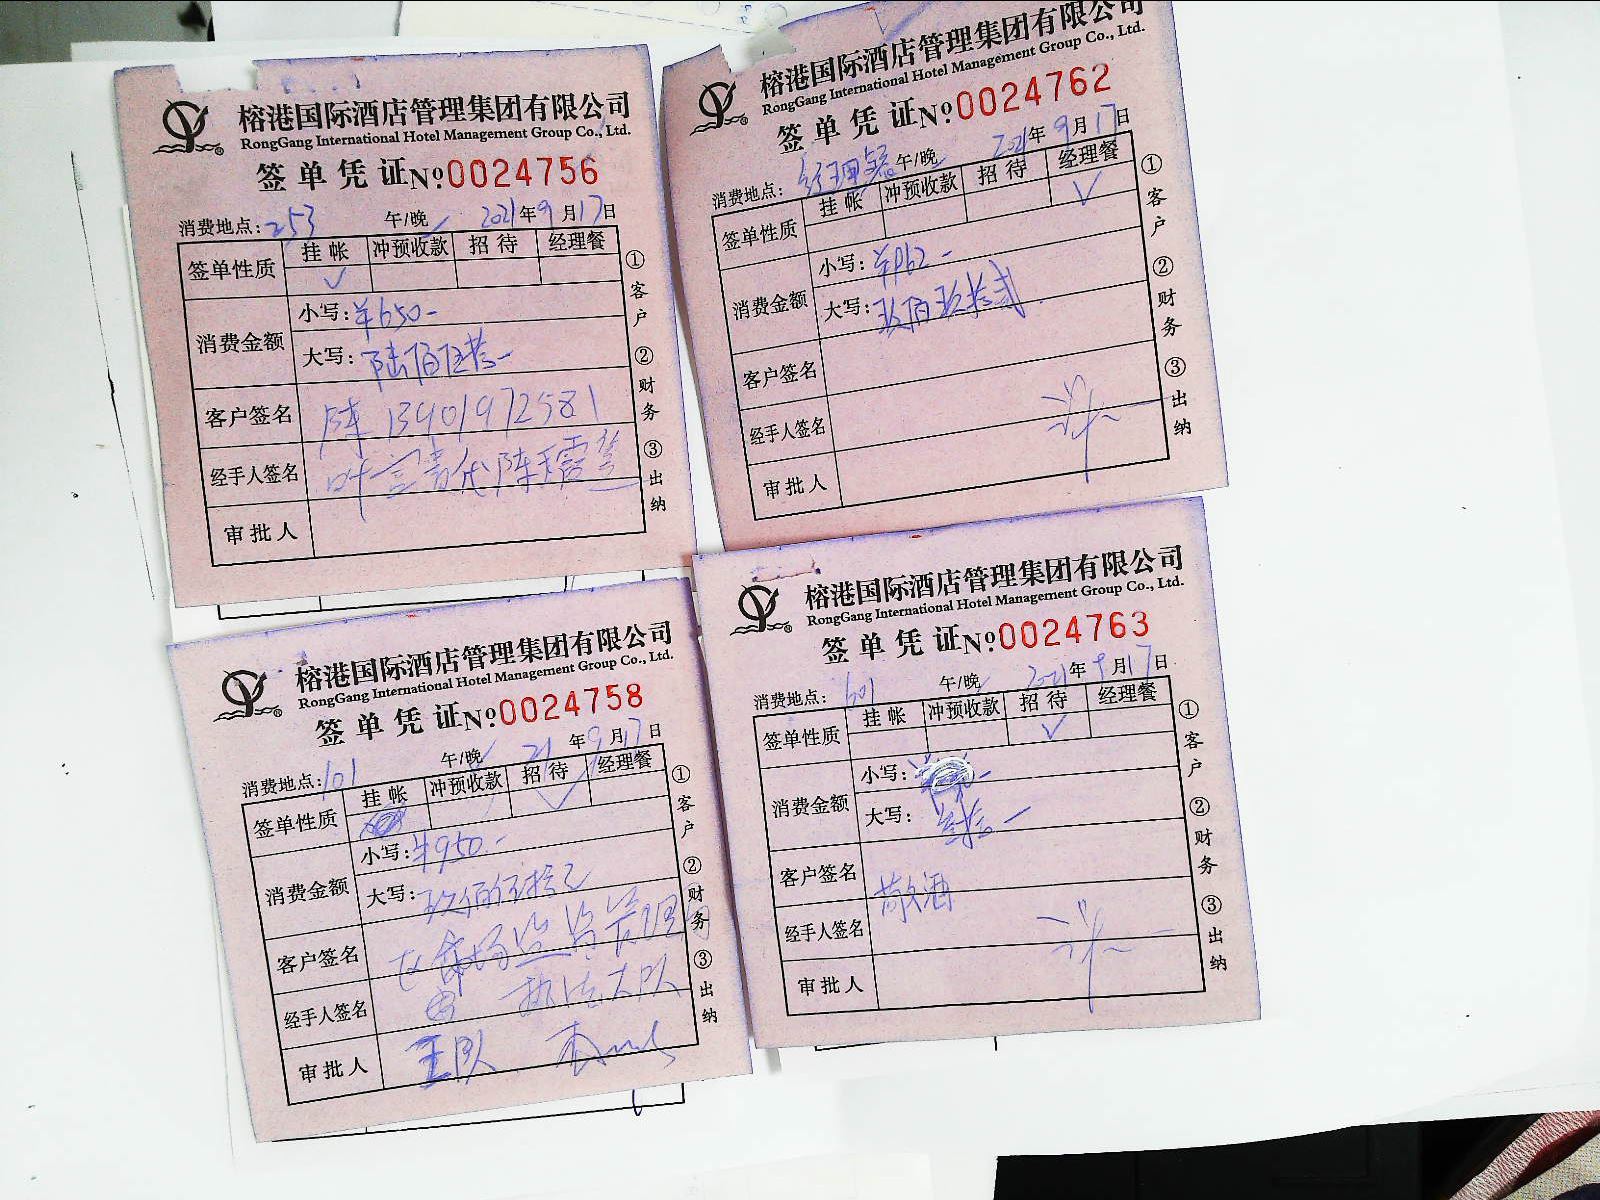 榕港国际酒店管理集团有限公司
RongGang International Hotel Management Group Co., Ltd.
签单凭证№0024756
消费地点：253 午/晚 2021年9月17日
签单性质 挂帐 冲预收款 招待 经理餐
✓
消费金额 小写：¥650-
大写：陆佰伍拾-
客户签名 陈 13901972581
经手人签名
审批人
①客户 ②财务 ③出纳
榕港国际酒店管理集团有限公司
RongGang International Hotel Management Group Co., Ltd.
签单凭证№0024762
消费地点：经理餐 午/晚 2021年9月17日
签单性质 挂帐 冲预收款 招待 经理餐
✓
消费金额 小写：
大写：玖佰玖拾贰
客户签名
经手人签名
审批人
①客户 ②财务 ③出纳
榕港国际酒店管理集团有限公司
RongGang International Hotel Management Group Co., Ltd.
签单凭证№0024758
消费地点：101 午/晚 21年9月17日
签单性质 挂帐 冲预收款 招待 经理餐
✓
消费金额 小写：¥950.-
大写：玖佰伍拾元
客户签名 区市场监督管理局
经手人签名 执法大队
审批人 王队
①客户 ②财务 ③出纳
榕港国际酒店管理集团有限公司
RongGang International Hotel Management Group Co., Ltd.
签单凭证№0024763
消费地点：601 午/晚 2021年9月17日
签单性质 挂帐 冲预收款 招待 经理餐
✓
消费金额 小写：
大写：
客户签名 敬酒
经手人签名
审批人
①客户 ②财务 ③出纳